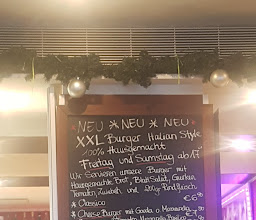 *NEU * NEU * NEU *
XXL Burger Italian Style
100% Hausgemacht
Freitag und Samstag ab 17°°
Wir Servieren unsere Burger mit
Hausgemachte Brot, Blatt Salat, Gurken,
Tomaten, Zwiebeln und 200gr Rindfleisch.
* Classico €6,90
* Cheese Burger mit Gouda o. Mozzarella